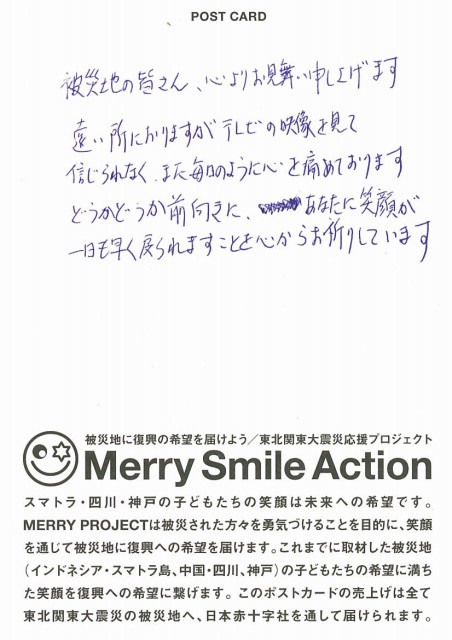 POST CARD
被災地の皆さん、心よりお見舞い申し上げます
遠い所におりますがテレビの映像を見て
信じられなく、また毎日のように心を痛めております
どうかどうか前向きに、あなたに笑顔が
一日も早く戻られますことを心からお祈りしています
被災地に復興の希望を届けよう／東北関東大震災応援プロジェクト
Merry Smile Action
スマトラ・四川・神戸の子どもたちの笑顔は未来への希望です。
MERRY PROJECTは被災された方々を勇気づけることを目的に、笑顔
を通じて被災地に復興への希望を届けます。これまでに取材した被災地
（インドネシア・スマトラ島、中国・四川、神戸）の子どもたちの希望に満ち
た笑顔を復興への希望に繋げます。このポストカードの売上げは全て
東北関東大震災の被災地へ、日本赤十字社を通して届けられます。